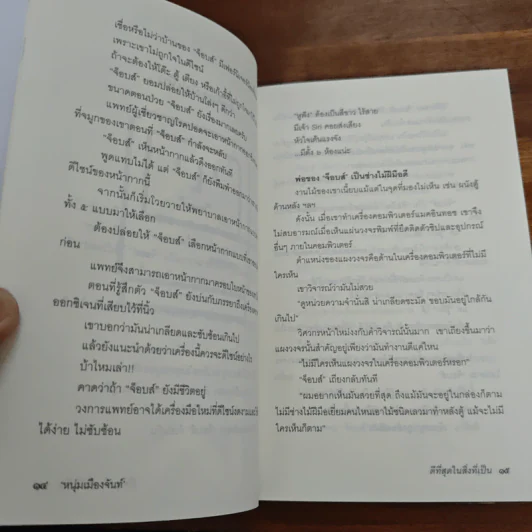 เชื่อหรือไม่ว่าบ้านของ "จ็อบส์"
เพราะเขาไม่ถูกใจในดีไซน์
ถ้าจะต้องให้โต๊ะ ตู้ เตียง หรือเก้าอี้
"จ็อบส์" ยอมปล่อยให้บ้านโล่งๆ ดีกว่า
ขนาดตอนป่วย "จ็อบส์" ยังเรื่องมากเลยครับ
แพทย์ผู้เชี่ยวชาญโรคปอดจะเอาหน้ากาก
ที่จมูกของเขาตอนที่ "จ็อบส์" กำลังจะหลับ
"จ็อบส์" เห็นหน้ากากแล้วดึงออกทันที
พูดแทบไม่ได้ แต่ "จ็อบส์" ก็ยังพึมพำออกมา
ดีไซน์ของหน้ากากนี้
จากนั้นก็เริ่มโวยวายให้พยาบาลเอาหน้ากาก
ทั้ง ๕ แบบมาให้เลือก
ต้องปล่อยให้ "จ็อบส์" เลือกหน้ากากแบบที่
ก่อน
แพทย์จึงสามารถเอาหน้ากากมาครอบใบหน้า
ตอนที่รู้สึกตัว "จ็อบส์" ยังบ่นกับภรรยาถึงเครื่อง
ออกซิเจนที่เสียบไว้ที่นิ้ว
เขาบอกว่ามันน่าเกลียดและซับซ้อนเกินไป
แล้วยังแนะนำด้วยว่าเครื่องนี้ควรจะดีไซน์อย่างไร
บ้าไหมเล่า!!
คาดว่าถ้า "จ็อบส์" ยังมีชีวิตอยู่
วงการแพทย์อาจได้เครื่องมือใหม่ที่ดีไซน์งดงาม
ได้ง่าย ไม่ซับซ้อน
๑๔ หนุ่มเมืองจันท์
"หูฟัง" ต้องเป็นสีขาว ไร้สาย
มีเจ้า Siri คอยส่งเสียง
หัวใจเต้นแรงจัง
...มีตั้ง ๖ ห้องแน่ะ
พ่อของ "จ็อบส์" เป็นช่างไม้ฝีมือดี
งานไม้ของเขาเนี้ยบแม้แต่ในจุดที่มองไม่เห็น เช่น ผนังตู้
ด้านหลัง ฯลฯ
ดังนั้น เมื่อเขาทำเครื่องคอมพิวเตอร์แมคอินทอช เขาจึง
ไม่สบอารมณ์เมื่อเห็นแผ่นวงจรพิมพ์ที่ยึดติดตัวชิปและอุปกรณ์
อื่นๆ ภายในคอมพิวเตอร์
ตำแหน่งของแผงวงจรคือด้านในเครื่องคอมพิวเตอร์ที่ไม่มี
ใครเห็น
เขาวิจารณ์ว่ามันไม่สวย
"ดูหน่วยความจำนั่นสิ น่าเกลียดชะมัด ขอบมันอยู่ใกล้กัน
เกินไป"
วิศวกรหน้าใหม่งงกับคำวิจารณ์นั้นมาก เขาเถียงขึ้นมาว่า
แผงวงจรนั้นสำคัญอยู่เพียงว่ามันทำงานดีแค่ไหน
"ไม่มีใครเห็นแผงวงจรในเครื่องคอมพิวเตอร์หรอก"
"จ็อบส์" เถียงกลับทันที
"ผมอยากเห็นมันสวยที่สุด ถึงแม้มันจะอยู่ในกล่องก็ตาม
ไม่มีช่างไม้ฝีมือเยี่ยมคนไหนเอาไม้ชนิดเลวมาทำหลังตู้ แม้จะไม่มี
ใครเห็นก็ตาม"
ดีที่สุดในสิ่งที่เป็น ๑๕